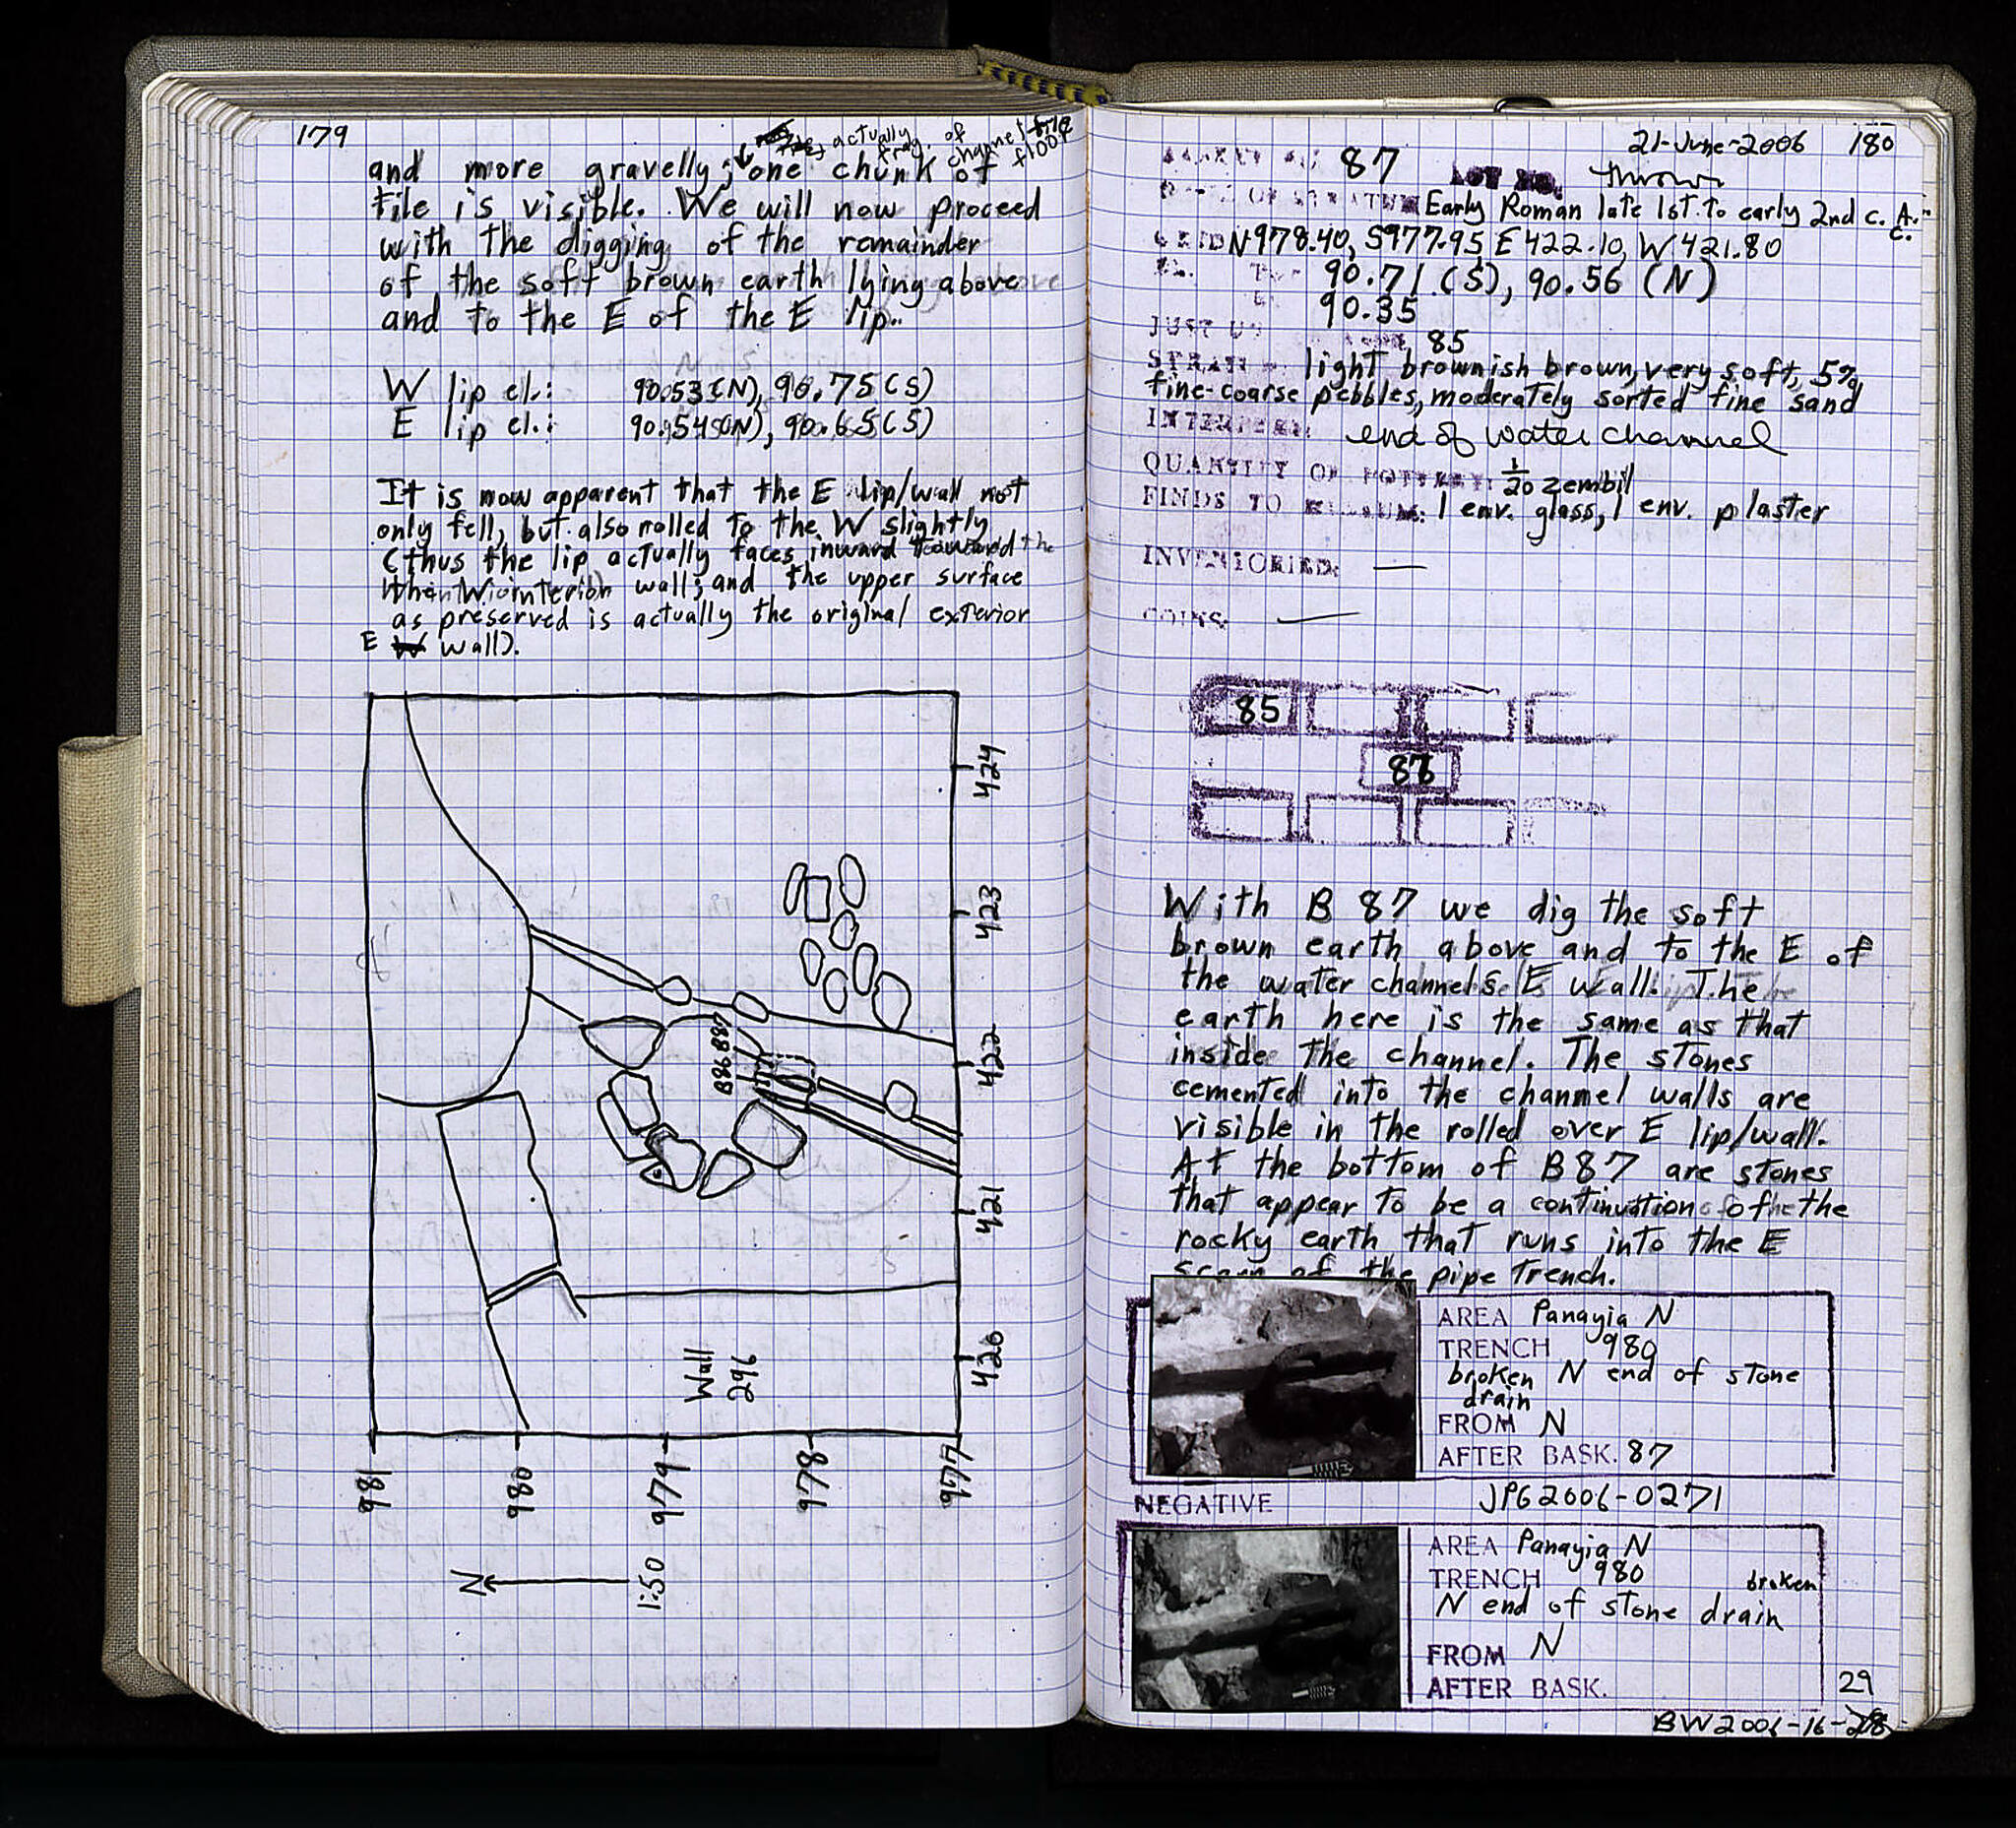 179
actually
frag. of
channel
floor
and more gravelly; one chunk of
tile is visible. We will now proceed
with the digging of the remainder
of the soft brown earth lying above
and to the E of the E lip.
W lip el.: 90.53(N), 90.75(S)
E lip el.: 90.54(N), 90.65(S)
It is now apparent that the E lip/wall not
only fell, but also rolled to the W slightly
(thus the lip actually faces inward toward the
interior wall; and the upper surface
as preserved is actually the original exterior
E wall).
424
423
422
421
420
B87
B86
Wall
792
981
980
979
978
977
N
1:50
21-June-2006 180
BASKET NO. 87 LOT NO. thrown
DATE OF STRATUM Early Roman late 1st. to early 2nd c. A.C.
GRID N978.40, S977.95, E422.10, W421.80
EL. TOP 90.71 (S), 90.56 (N)
90.35
JUST UNDER BASK. 85
STRATUM: light brownish brown, very soft, 5%
fine-coarse pebbles, moderately sorted fine sand
INTERPRET: end of water channel
QUANTITY OF POTTERY: 1/20 zembil
FINDS TO MUSEUM: 1 env. glass, 1 env. plaster
INVENTORIED: —
COINS: —
85
87
With B 87 we dig the soft
brown earth above and to the E of
the water channel's E wall. The
earth here is the same as that
inside the channel. The stones
cemented into the channel walls are
visible in the rolled over E lip/wall.
At the bottom of B87 are stones
that appear to be a continuation of the
rocky earth that runs into the E
scarp of the pipe trench.
AREA Panayia N
TRENCH 980
broken N end of stone
drain
FROM N
AFTER BASK. 87
NEGATIVE JPG2006-0271
AREA Panayia N
TRENCH 980
broken
N end of stone drain
FROM N
AFTER BASK.
29
BW2006-16-28